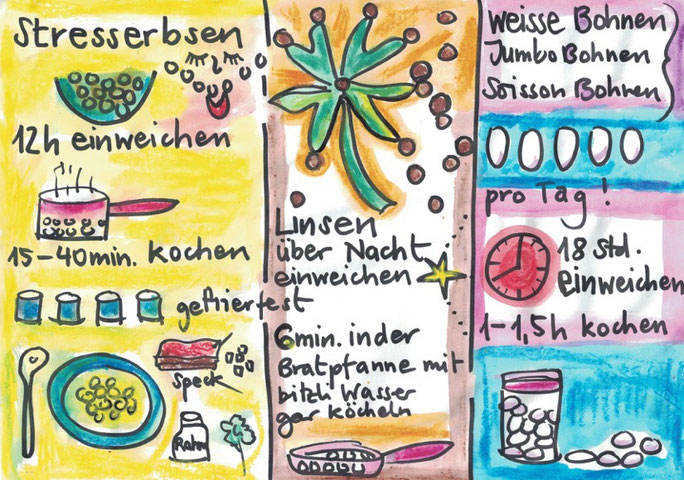 Stresserbsen
12h einweichen
15-40min. kochen
gefrierfest
Speck
Rahm
Linsen
über Nacht
einweichen
6min. in der
Bratpfanne mit
bitzli Wasser
gar köcheln
Weisse Bohnen
Jumbo Bohnen
Soisson Bohnen
pro Tag!
18 Std.
einweichen
1-1,5h kochen